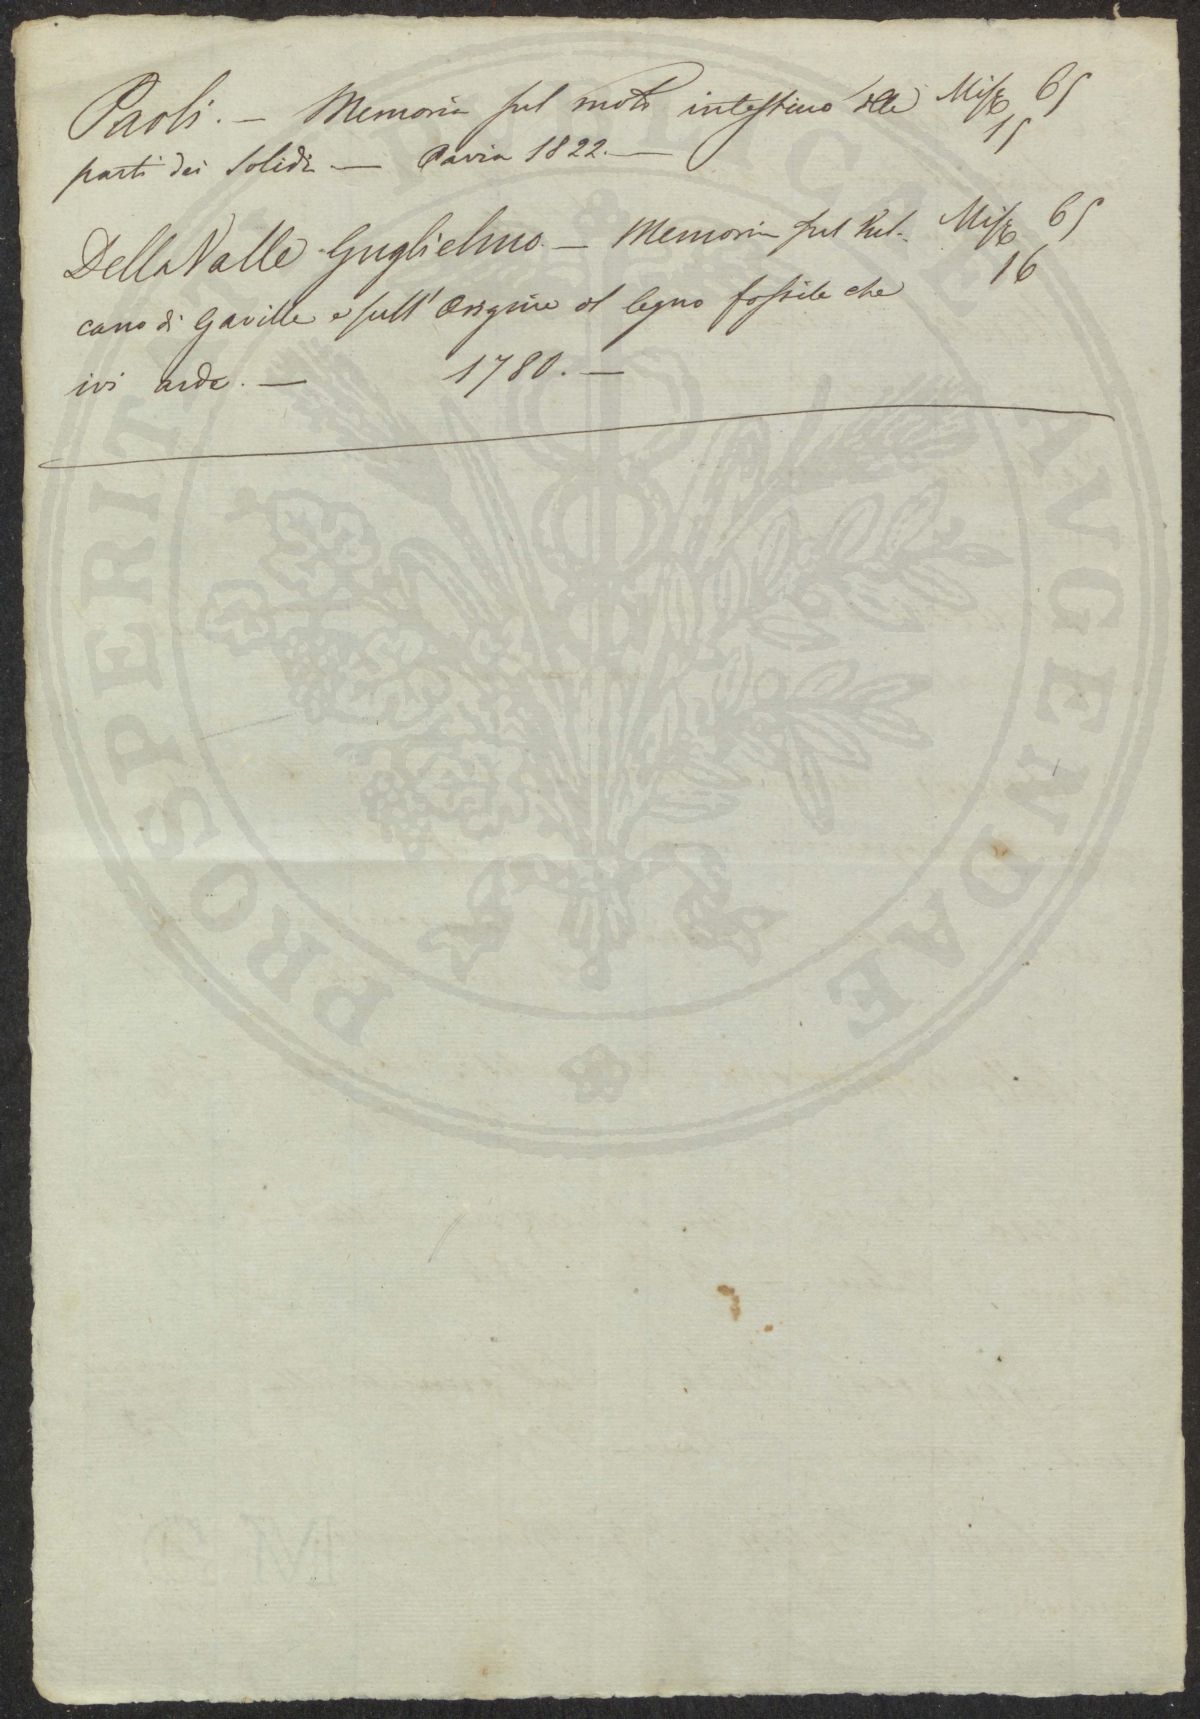 Paoli. — Memoria sul moto intestino delle Misc 65
15
parti dei Solidi — Pavia 1822. —
Della Valle Guglielmo. — Memoria sul Vul- Misc 65
16
cano di Gaville e sull' Origine del legno fossile che
ivi arde. — 1780. —
PROSPERITATI PVBLICAE AVGENDAE